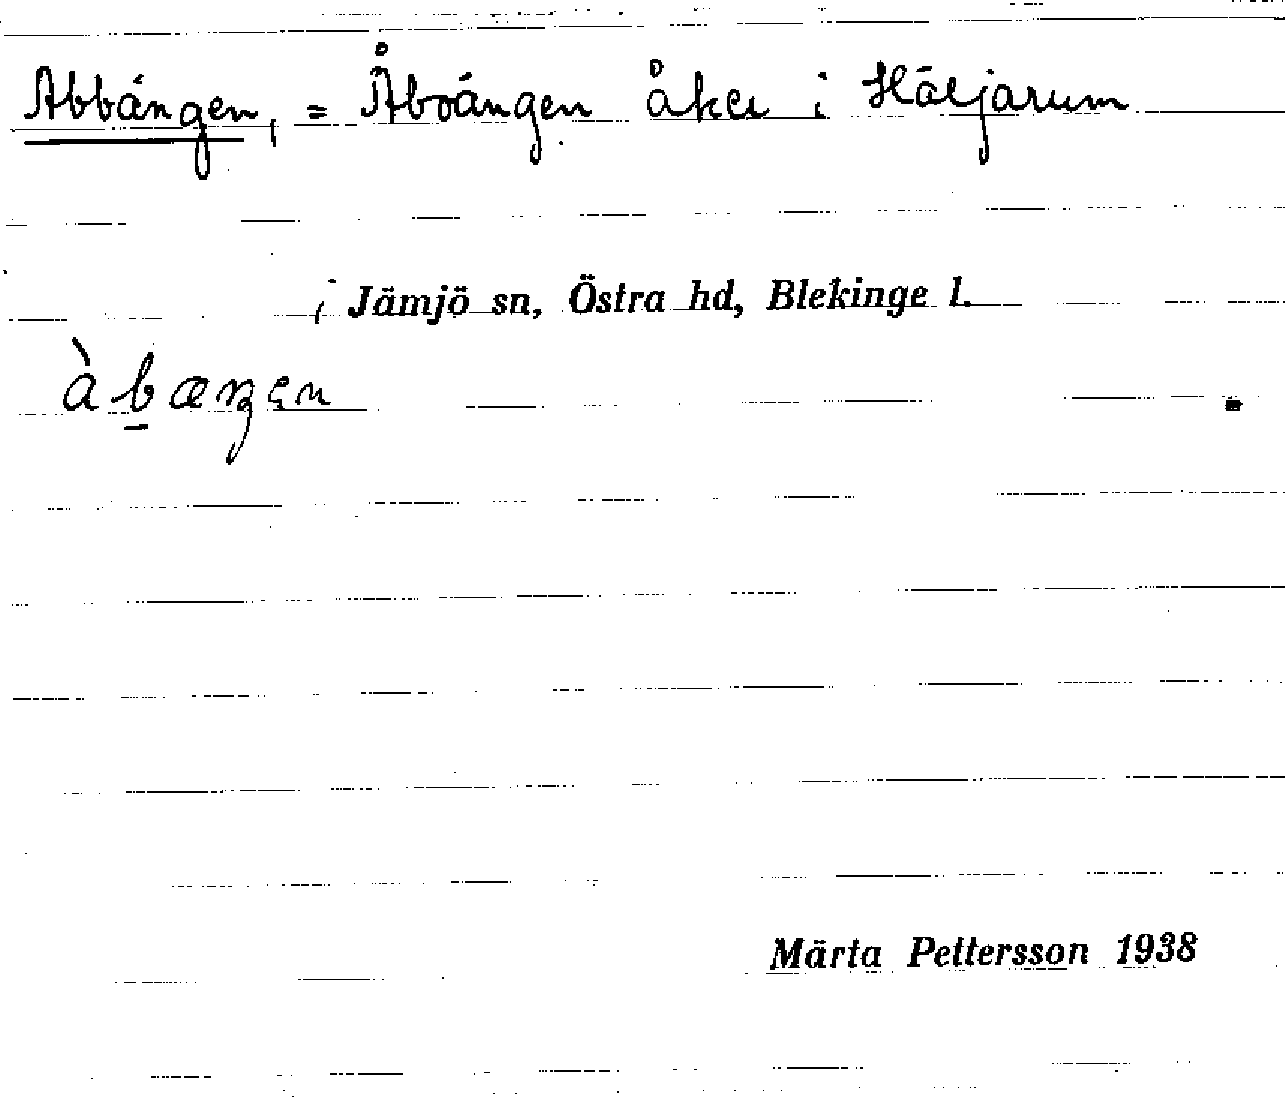 Abbängen, = Åboängen åker i Häljarum
i Jämjö sn, Östra hd, Blekinge l.
Märta Pettersson 1938